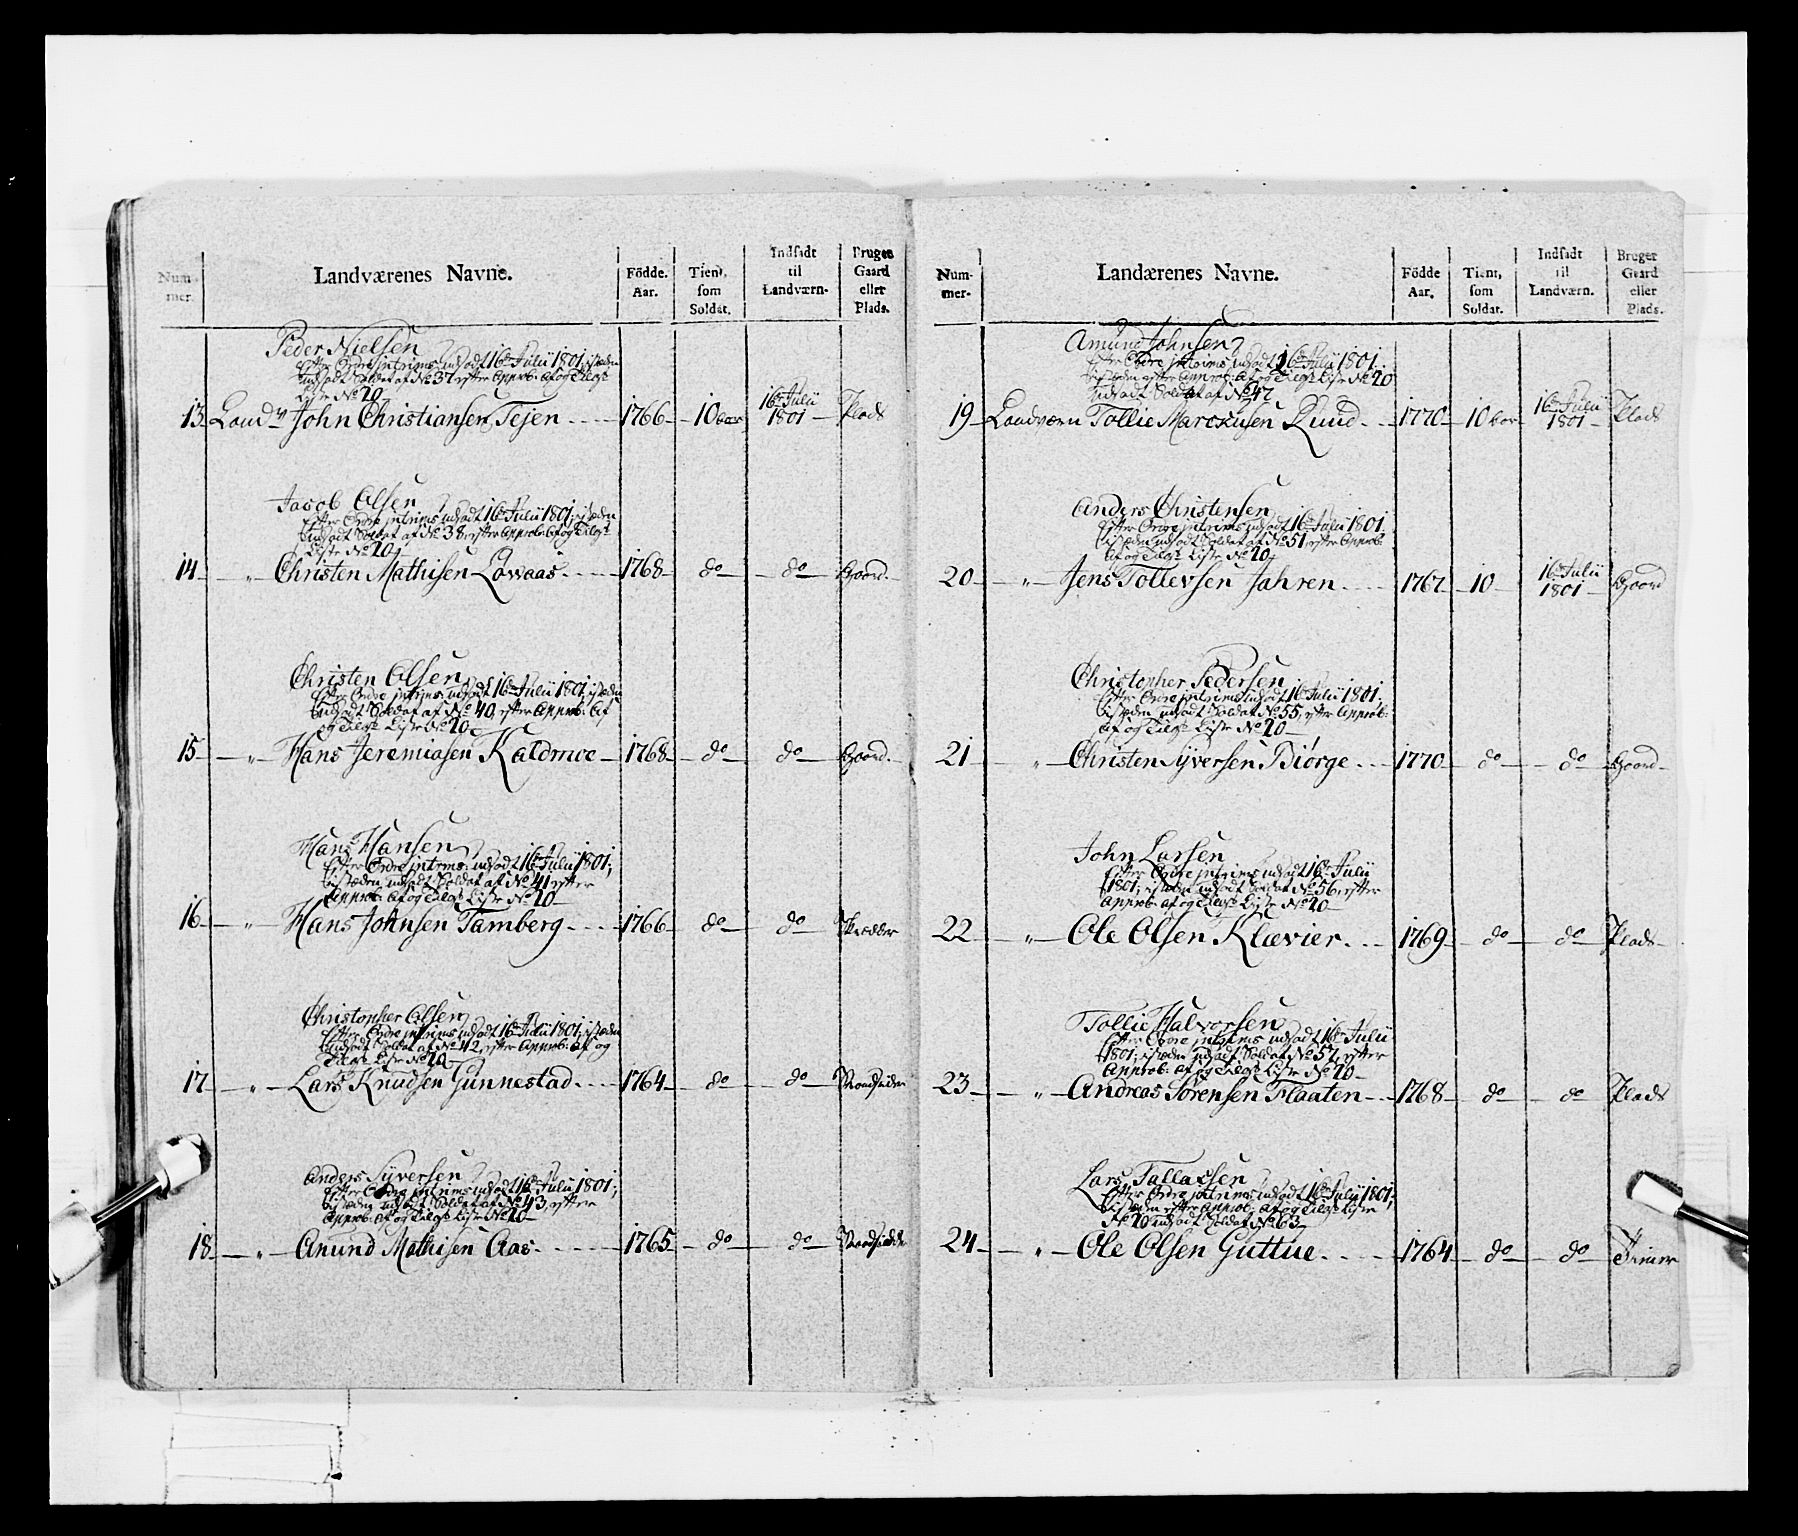 Num-
mer.
Landværenes Navne.
Födde.
Aar.
Tient,
som
Soldat.
Indsadt
til
Landværn.
Bruger
Gaard
eller
Plads.
Peder Nielsen
Efter Ordre intrims udsadt 16de Julii 1801, isteden
indsadt Soldat af No 37 efter Approb: Af og Tilgs
Liste No 20
13 Landv John Christiansen Tejen 1766 10 aar 16de Julii 1801 Plads
Jacob Olsen
Efter Ordre intrims udsadt 16de Julii 1801, isteden
indsadt Soldat af No 38, efter Approb: Af og Tilgs
Liste No 20
14 " Christen Mathisen Lowaas 1768 do do Gaard
Christen Olsen
Efter Ordre intrims udsadt 16de Julii 1801, isteden
indsadt Soldat af No 40, efter Approb: Af
og Tilgs Liste No 20
15 " Hans Jeremiasen Kaldmoe 1768 do do Gaard
Hans Hansen
Efter Ordre intrims udsadt 16de Julii 1801,
isteden indsadt Soldat af No 41 efter
Approb: Af og Tilgs Liste No 20
16 " Hans Johnsen Tamberg 1766 do do
Christopher Olsen
Efter Ordre intrims udsadt 16de Julii 1801, isteden
indsadt Soldat af No 42, efter Approb: Af og
Tilgs Liste No 20
17 " Lars Knudsen Gunnestad 1764 do do
Anders Syversen
Efter Ordre intrims udsadt 16de Julii 1801,
isteden indsadt Soldat af No 43, efter
Approb: Af og Tilgs Liste No 20
18 " Amund Mathisen Aas 1765 do do
Num-
mer.
Landærenes Navne.
Födde
Aar,
Tient,
som
Soldat.
Indsadt
til
Landværn.
Bruger
Gaard
eller
Plads.
Amund Johnsen
Efter Ordre intrims udsadt 16de Julii 1801,
isteden efter Approb: Af og Tilgs Liste No 20
indsadt Soldat af No 47
19 Landværn Tollie Marcusen Rund 1770 10 aar 16de Julii 1801 Plads
Anders Christensen
Efter Ordre intrims udsadt 16de Julii 1801,
isteden indsadt Soldat af No 51, efter Approb:
Af og Tilgs Liste No 20
20 " Jens Tollevsen Jahren 1767 10 16de Julii 1801 Gaard
Christopher Pedersen
Efter Ordre intrims udsadt 16de Julii 1801,
isteden indsadt Soldat No 55, efter Approb:
Af og Tilgs Liste No 20
21 " Christen Syversen Biörge 1770 do do Gaard
John Larsen
Efter Ordre intrims udsadt 16de Julii
1801, isteden indsadt Soldat No 56, efter
Approb: af og Tilgs Liste No 20
22 " Ole Olsen Klævier 1769 do do Plads
Tollie Halvorsen
Efter Ordre intrims udsadt 16de Julii
1801, isteden indsadt Soldat No 57, efter
Approb: af og Tilgs Liste No 20
23 " Andreas Sörensen Flaaten 1768 do do Plads
Lars Tallacsen
Efter Ordre intrims udsadt 16de Julii 1801,
isteden efter Approb: Af og Tilgs Liste
No 20 indsadt Soldat No 63
24 " Ole Olsen Guttue 1764 do do